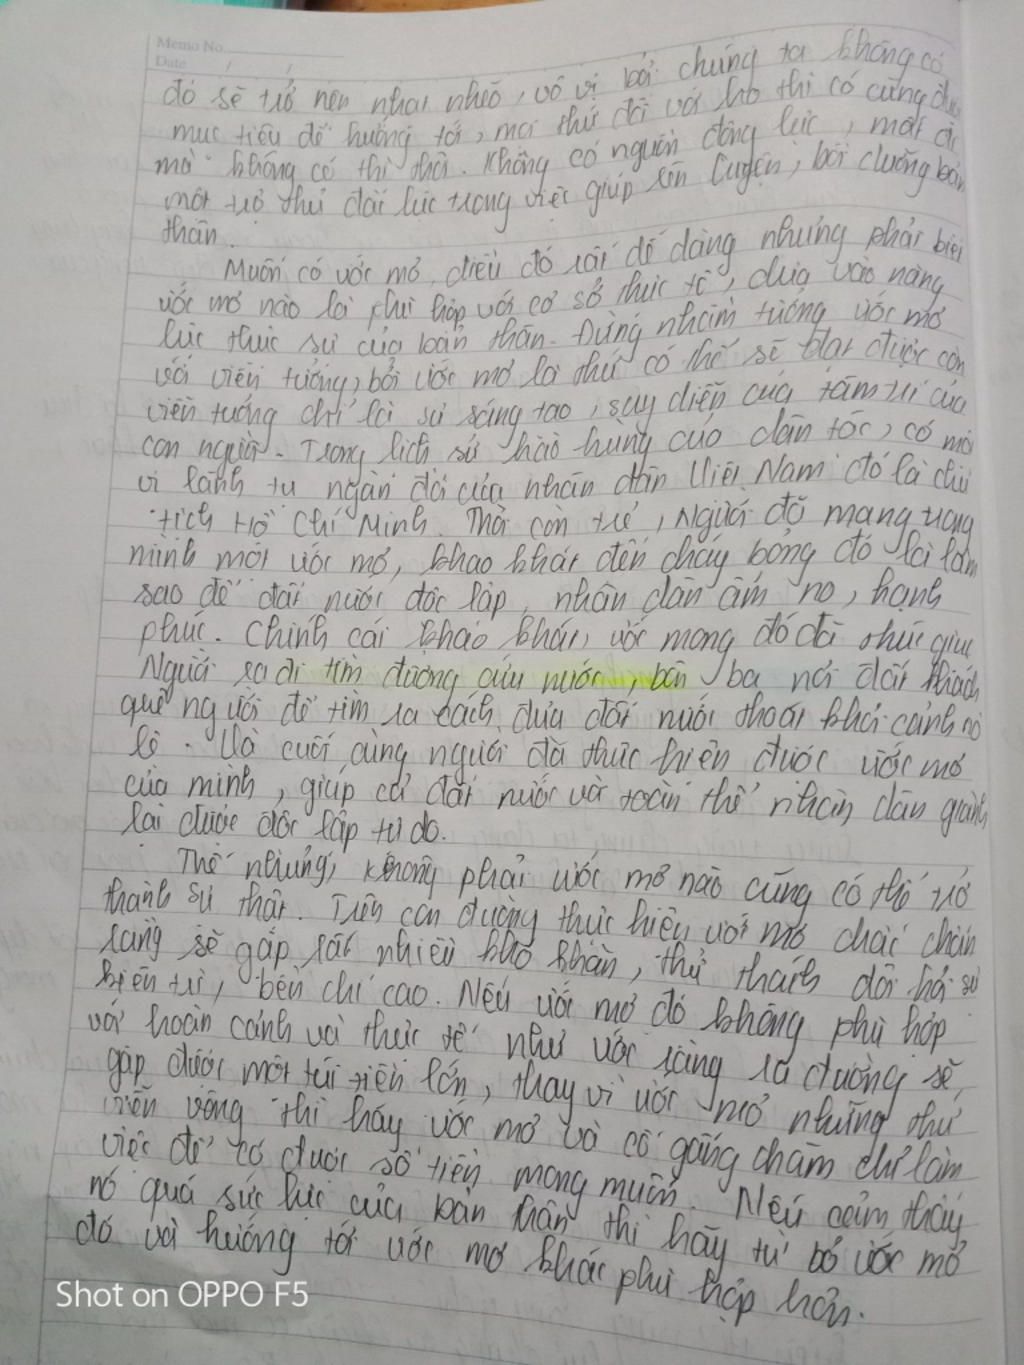 Memo No.
Date / /
đó sẽ trở nên nhạt nhẽo, vô vị bởi chúng ta không có
mục tiêu để hướng tới, mọi thứ đối với họ thì có cũng được
mà không có thì thôi. Không có nguồn động lực, một
một trở thử đắc lực trong việc giúp rèn luyện, bồi dưỡng bản
thân.
Muốn có ước mơ, điều đó rất dễ dàng nhưng phải biết
ước mơ nào là phù hợp với cơ sở thực tế, dựa vào năng
lực thực sự của bản thân. Đừng nhầm tưởng ước mơ
với viển tưởng, bởi ước mơ là thứ có thể sẽ đạt được còn
viển tưởng chỉ là sự sáng tạo, suy diễn của tâm trí của
con người. Trong lịch sử hào hùng của dân tộc, có một
vị lãnh tụ ngàn đời của nhân dân Việt Nam đó là chủ
tịch Hồ Chí Minh. Thời còn trẻ, Người đã mang trong
mình một ước mơ, khao khát đến cháy bỏng đó là làm
sao để đất nước độc lập, nhân dân ấm no, hạnh
phúc. Chính cái khao khát, ước mong đó đã thúc giục
Người ra đi tìm đường cứu nước, bôn ba nơi đất khách
quê người để tìm ra cách đưa đất nước thoát khỏi cảnh nô
lệ. Và cuối cùng người đã thực hiện được ước mơ
của mình, giúp cả đất nước và toàn thể nhân dân giành
lại được độc lập tự do.
Thế nhưng, không phải ước mơ nào cũng có thể trở
thành sự thật. Trên con đường thực hiện ước mơ chắc chắn
rằng sẽ gặp rất nhiều khó khăn, thử thách đòi hỏi sự
kiên trì, bền chí cao. Nếu ước mơ đó không phù hợp
với hoàn cảnh và thực tế như ước rằng ra đường sẽ
gặp được một túi tiền lớn, thay vì ước mơ những thứ
viển vông thì hãy ước mơ và cố gắng chăm chỉ làm
việc để có được số tiền mong muốn. Nếu cảm thấy
nó quá sức lực của bản thân thì hãy từ bỏ ước mơ
đó và hướng tới ước mơ khác phù hợp hơn.
Shot on OPPO F5